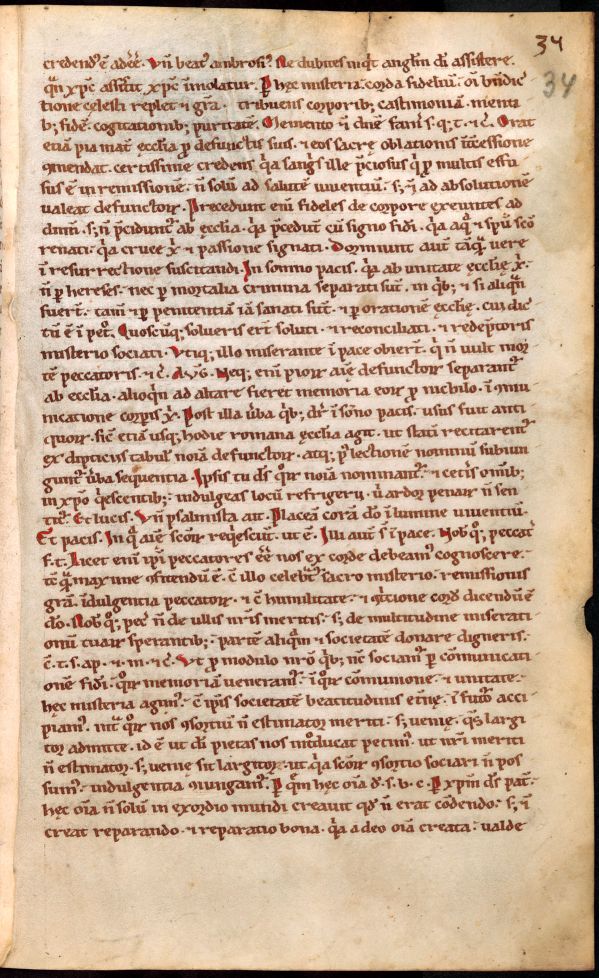 34
34
credendũ ẽ adeẽ. Vñ beat᾽ ambrosi᾽. Ne dubites inqt angłm dī assistere.
qñ xpc̄ assistit xpc̄ īmolatur. P hęc misteria corda fideliũ oī bñdic
tione celesti replet ⁊ gr̄a. tribuens corporib; castimoniā. menti
b; fidē. cogitationib; puritatē. Memento &c̄ dn̄e famł.s.q;.t.⁊c̄. Orat
etiā pia mat̄ ęcclia ꝓ defunctis suis. ⁊ eos sacrę oblationis ĩtc̄essione
ꝯmendat. certissime credens qa sangs ille p̄ciosus q ꝓ multis effu
sus ē in remissionē. n̄ solũ ad salutē viuentiũ. s; ⁊ ad absolutionē
valeat defunctoꝝ. Precedunt eni fideles de corpore exeuntes ad
dnm̄. s; n̄ p̄ciduntᵣ ab ęcclia. qa p̄cedunt cũ signo fidi. qa aq ⁊ spũ scō
renati. qa cruce xᵢ ⁊ passione signati. Dormiunt aut̄ tāq vere
ī resurrectione suscitandi. In somno pacis. qa ab unitate ęcclię xᵢ.
n̄ p hereses. nec p mortalia crimina separati sut̄. in qb; ⁊ si aliqn
fuert̄. tam̄ ⁊ p penitentiā iā sanati sut̄. ⁊ p orationē ecclię. cui dic
tũ ē ī pet͡o. Quoscũq; solueris ert̄ soluti. ⁊ reconciliati. ⁊ redēptoris
misterio sociati. Vtiq; illo miserante ī pace obiert̄. q n̄ vult mor
tē peccatoris. ⁊c̄. AVG. Neq; eni pioꝝ aīe defunctoꝝ separantᵣ
ab ecclia. alioqn ad altare fieret memoria eoꝝ ꝓ nichilo. ī ꝯmu
nicatione corpis xᵢ. Post illa v̄ba qb; dr̄ ī sōno pacis. usus fuit anti
quoꝝ. sic̄ etiā usq; hodie romana ęcclia agit. ut statī recitarentᵣ
ex dipticis tabul noīa defunctoꝝ. atq; p̄ lectionē nominũ subiun
guntᵣ v̄ba sequentia. Ipsis tu dс qꝝ noīa nominantᵣ. ⁊ cetis omīb;
in xpō qescentib;. indulgeas locũ refrigerii. ũ ardor penaꝝ n̄ sen
titᵣ. Et lucis. Vñ psalmista ait. Placeā corā dō ī lumine viuentiũ.
Et pacis. In q aīe scōꝝ reqescũt. ut ē. Illi aut̄ st̄ ī pace. Nob q; peccat
f.t. Licet eni ip̄i peccatores eē nos ex corde debeam᾽ cognoscere.
tc̄ q maxime ꝯfitendũ ē. c̄ illo celebtᵣ sacro misterio. remissionis
gr̄a. īdulgentia peccatoꝝ. ⁊ c̄ humilitate. ⁊ ꝯtⁱcione cord dicendũ ē
dō. Nob q; pec n̄ de ullis nr̄is meritis. s; de multitudine miserati
onũ tuaꝝ sperantib;. partē aliqm ⁊ societatē donare digneris.
c̄.t.s.ap.⁊ m.⁊c̄. Vt ꝓ modulo nr̄o qb; nc̄ sociam᾽ p cōmunicati
onē fidi. qꝝ memoriā veneram᾽. ī qꝝ cōmunione. ⁊ unitate.
hęc misteria agim᾽. c̄ ipis societatē beatitudinis etnę. ī futo acci
piam᾽. intᵃ qꝝ nos ꝯsortiũ n̄ estimator meriti. s; venię. qs largi
tor admitte. id ē ut dī pietas nos īt͡oducat petim᾽. ut nr̄i meriti
n̄ estimator. s; venię sit largitor. ut qa scōꝝ ꝯsortio sociari n̄ pos
sum᾽. indulgentia ꝯiungam᾽. P qm hęc oīa d.s.b.c. P xpm ds pat̄.
hęc oīa n̄ solũ in exordio mundi creauit qd n̄ erat condendo. s; ⁊
creat reparando. ⁊ reparatio bona. qa a deo oīa creata. valde